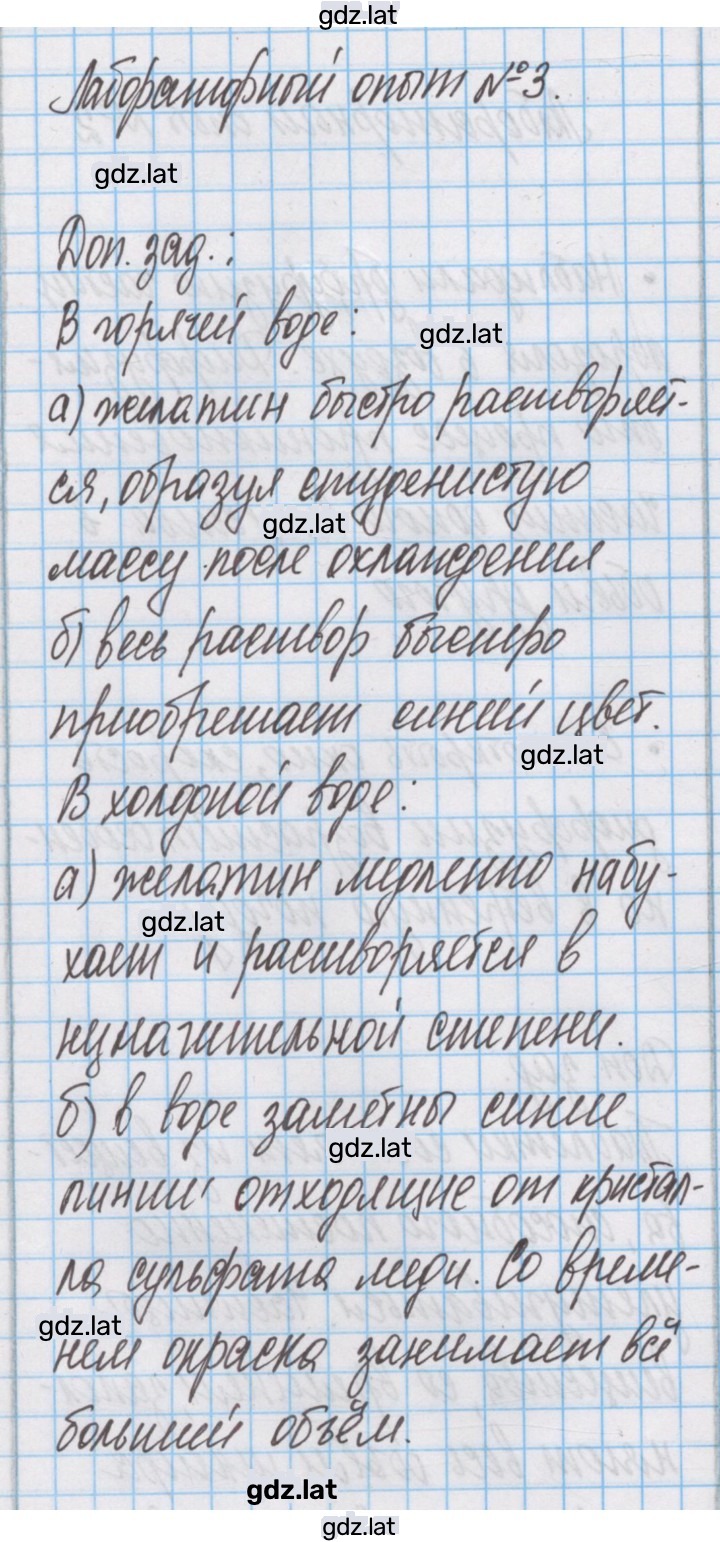 gdz.lat
Лабораторный опыт №3.
gdz.lat
Доп. зад.:
В горячей воде:
gdz.lat
а) желатин быстро растворяет-
ся, образуя студенистую
gdz.lat
массу после охлаждения
б) весь раствор быстро
приобретает синий цвет.
gdz.lat
В холодной воде:
а) желатин медленно набу-
gdz.lat
хает и растворяется в
незначительной степени.
б) в воде заметны синие
gdz.lat
линии, отходящие от кристал-
ла сульфата меди. Со време-
gdz.lat
нем окраска занимает всё
больший объём.
gdz.lat
gdz.lat